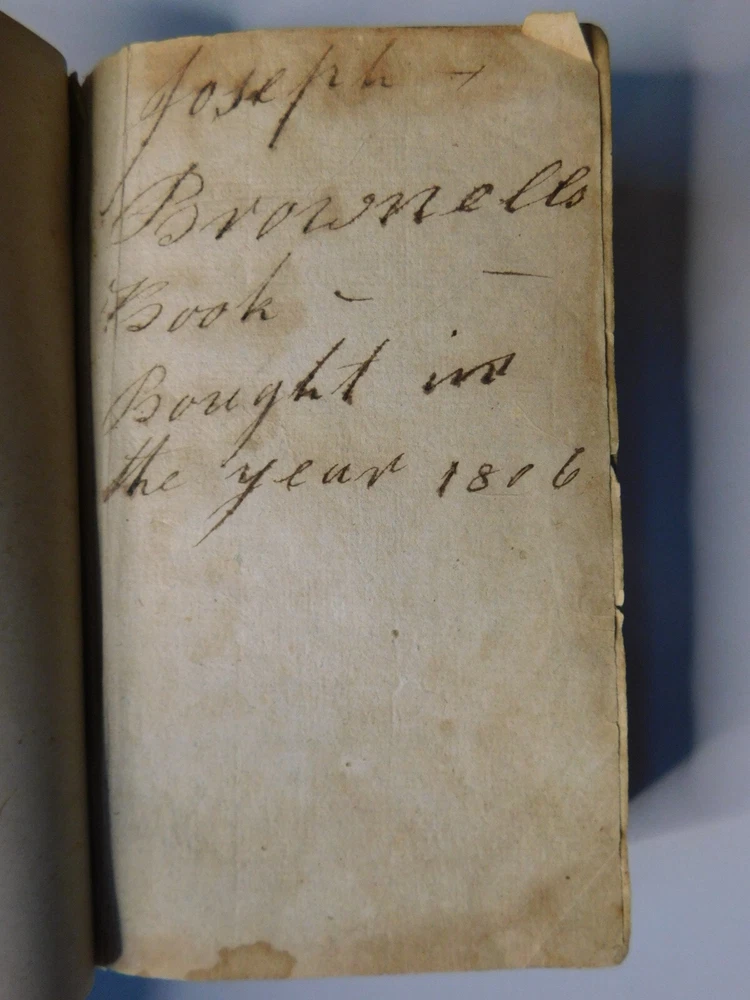 Joseph -
Brownells
Book -
Bought in
the year 1806